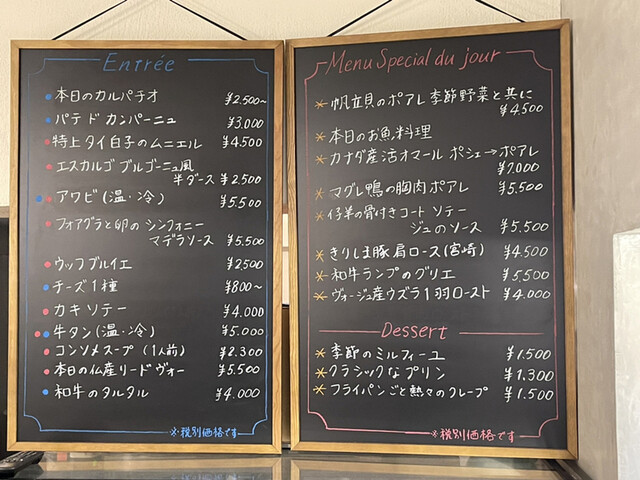 Entrée
本日のカルパチオ ¥2.500~
パテ ド カンパーニュ ¥3.000
特上 タイ 白子のムニエル ¥4.500
エスカルゴ ブルゴーニュ風
半ダース ¥2.500
アワビ (温・冷) ¥5.500
フォアグラと卵の シンフォニー
マデラソース ¥5.500
ウッフブルイエ ¥2500
チーズ1種 ¥800~
カキ ソテー ¥4.000
牛タン (温・冷) ¥5.000
コンソメスープ (1人前) ¥2.300
本日の仏産リードヴォー ¥5.500
和牛のタルタル ¥4.000
※税別価格です
Menu Special du jour
帆立貝のポアレ 季節野菜と共に
¥4.500
本日のお魚料理
カナダ産活オマール ポシェ→ポアレ
¥7.000
マグレ鴨の胸肉ポアレ ¥5.500
仔羊の骨付きコート ソテー
ジュのソース ¥5.500
きりしま豚肩ロース(宮崎) ¥4.500
和牛ランプのグリエ ¥5.500
ヴォージュ産ウズラ1羽ロースト ¥4.000
Dessert
季節のミルフィーユ ¥1.500
クラシックなプリン ¥1.300
フライパンごと熱々のクレープ ¥1.500
※税別価格です